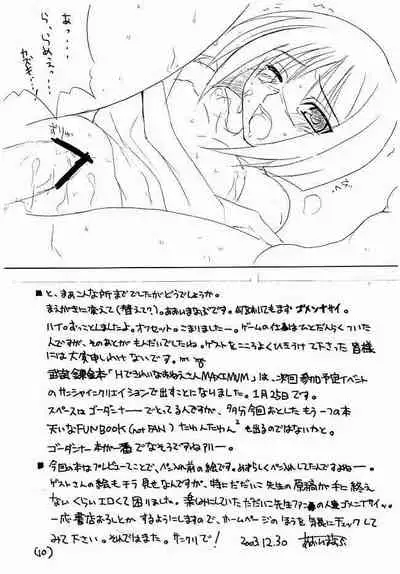 あっ・・・
ら、らめえっ・・・
カズキ・・・
■と、まあこんな所まででしたがどうでしょうか。
まえがきに変えて(替えて?)。あおいまなぶです。
ハイ。おっことしましたよ。オフセット。こまりましたー。ゲームの仕事は
んですが、そのあとが もんだいでしたね。ゲストをこころよくひきうけて下さった 皆様
には大変申しわけないです。m _ _ m
武装錬金本「HできれいなおねえさんMAXIMUM」は、次回参加予定イベント
のサンシャインクリエイションで出すことになりました。1月25日です。
スペースはゴーダンナーでとってるんですが、多分今回おとした もう一つの本
FUN BOOK (not FAN)
も出るのではないかと。
ゴーダンナー本が一番
■今回の本はプレビューってことで、ペン入れ前の絵です。めずらしくペン入れしてたんですよねー。
ゲストさんの絵もチラ見せなんですが、特にただいこ先生の原稿が手に終え
ないくらいエロくて困りました。楽しみにしていたただいこ先生ファンの人達ゴメンナサイッ。
一応書店おろしとか するようにしますので、ホームページのほうを気長にチェックして
みて下さい。それではまた。サンクリで! 2003.12.30
(10)